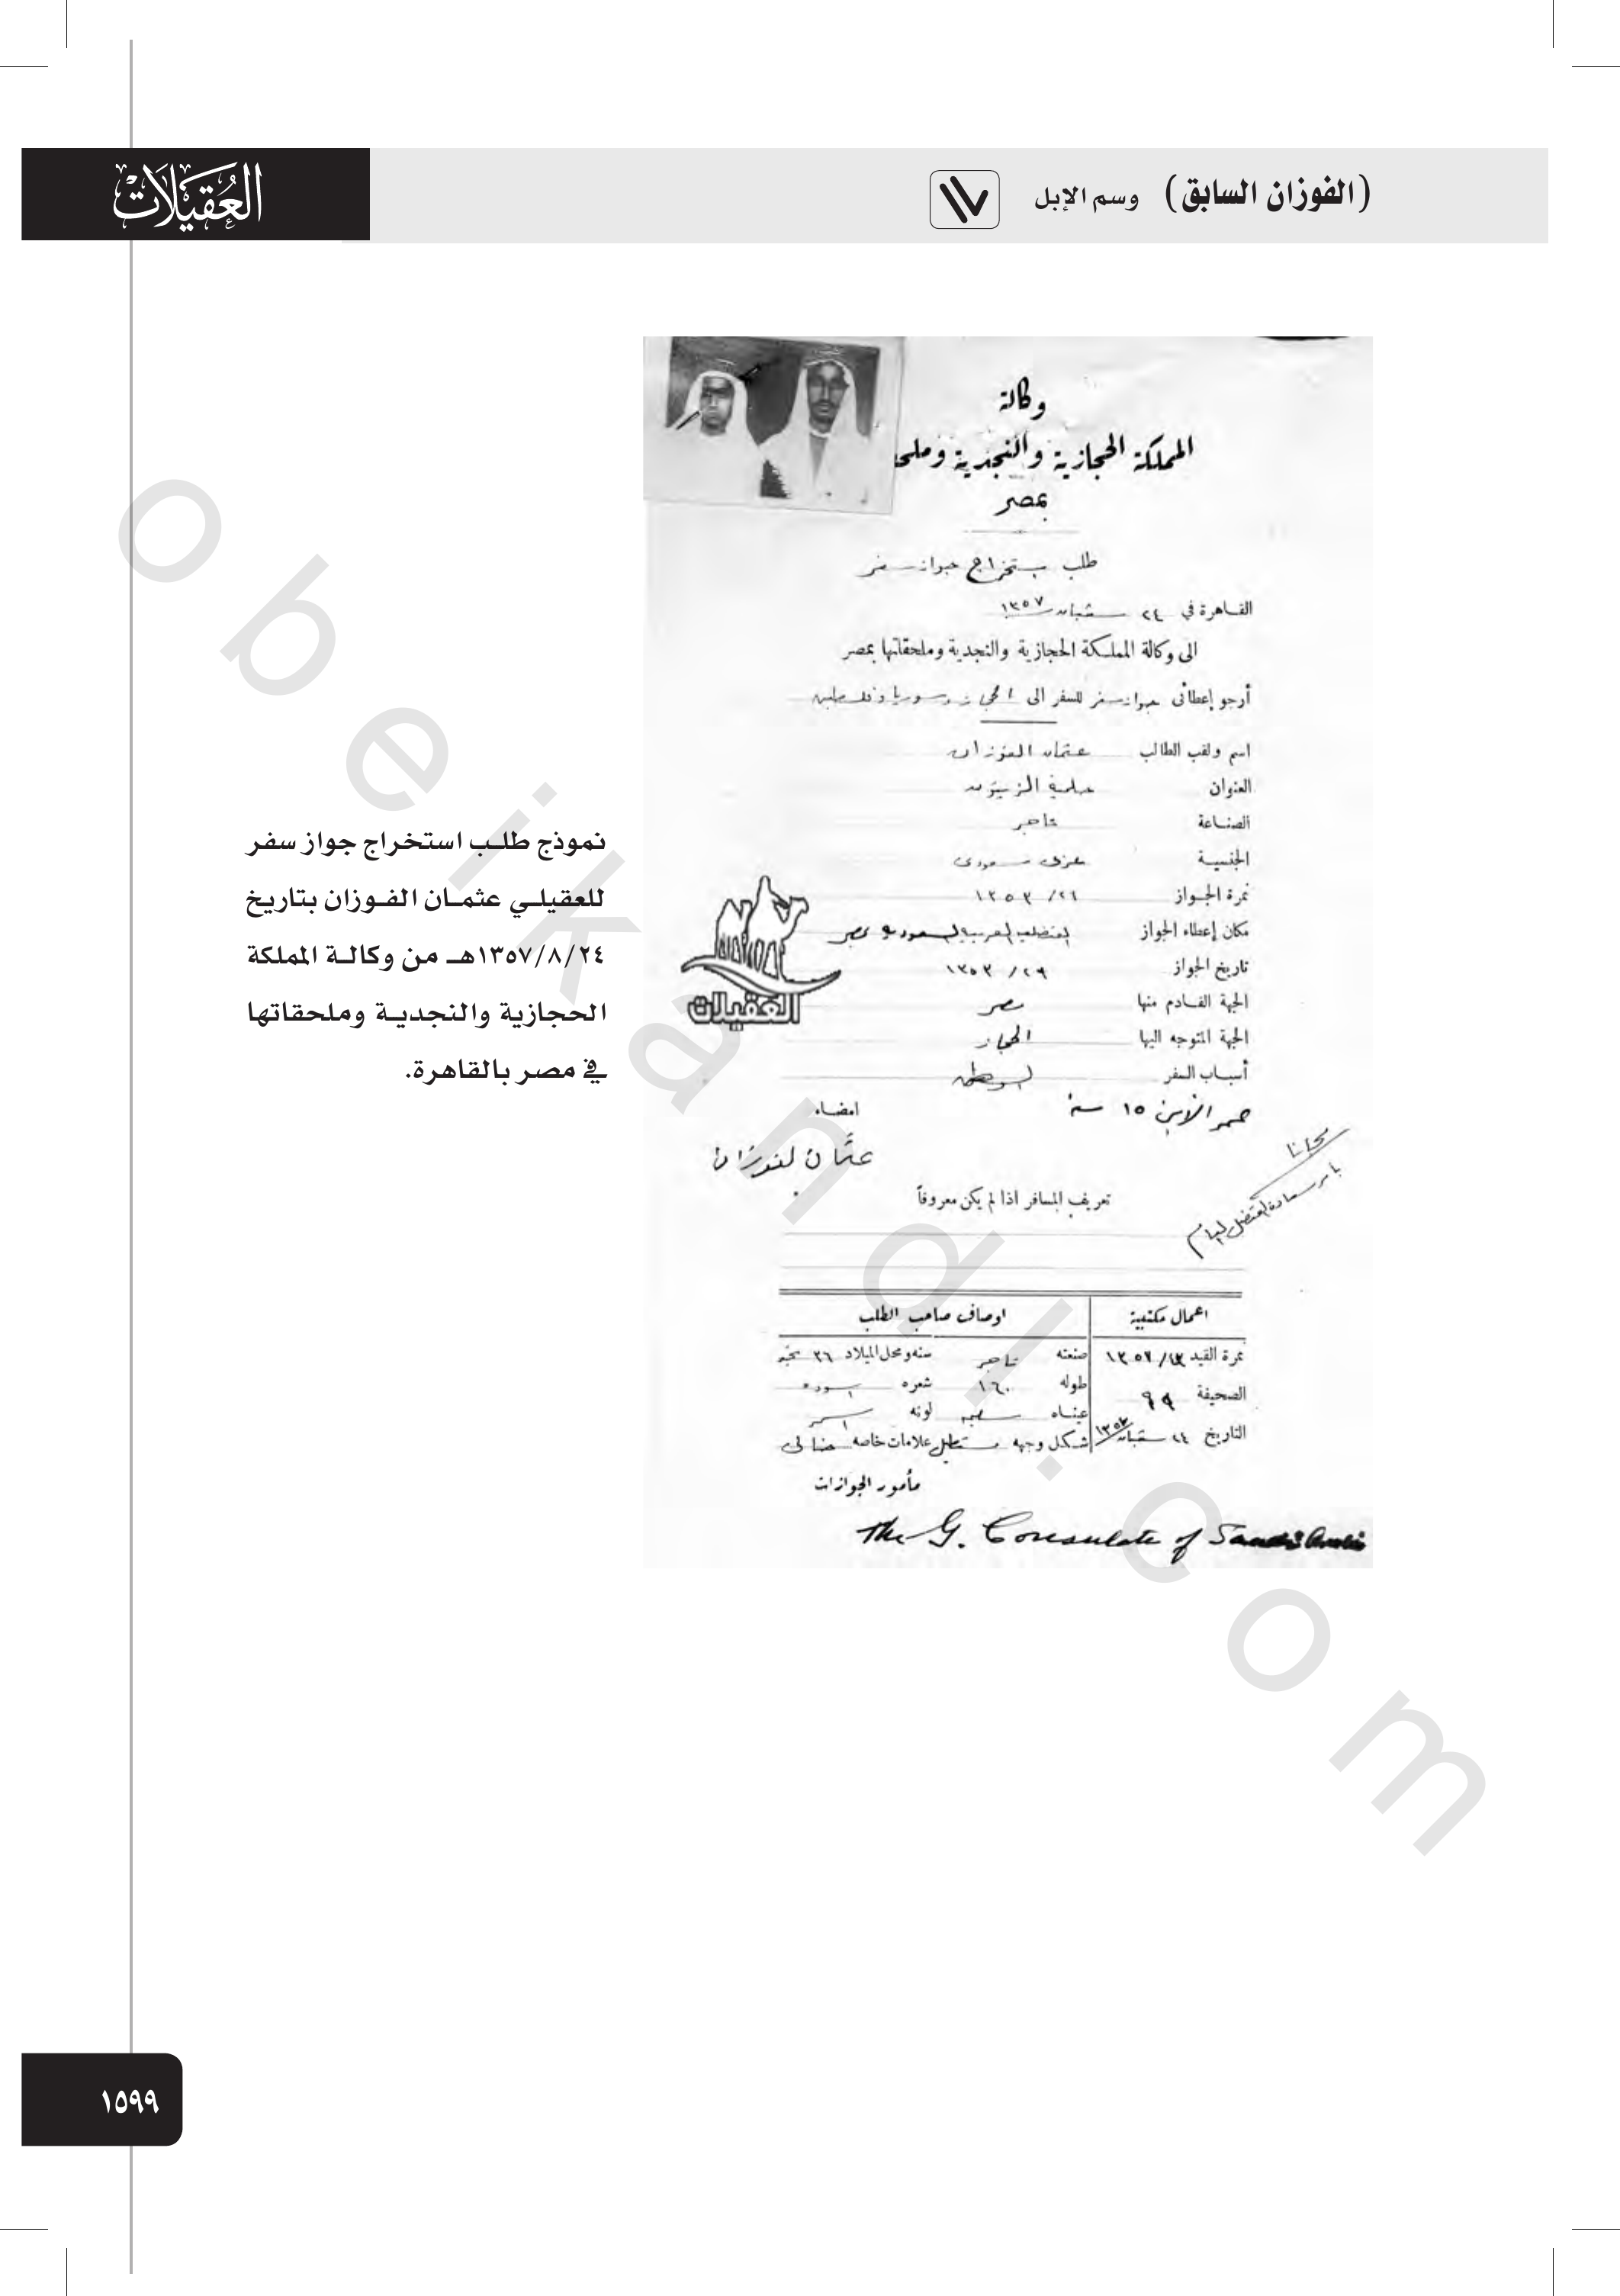 العقيلات
(الفوزان السابق) وسم الإبل
وكالة
المملكة الحجازية والنجدية وملحـ
بمصر
طلب استخراج جواز سفر
القاهرة في ٢٤ شعبان ١٣٥٧
الى وكالة المملكة الحجازية والنجدية وملحقاتها بمصر
أرجو إعطائى جواز سفر للسفر الى الحجاز وسوريا وفلسطين
اسم ولقب الطالب عثمان الفوزان
العنوان حلمية الزيتون
الصناعة تاجر
الجنسية عربى سعودى
نمرة الجواز ٢٦/ ١٣٥٣
مكان إعطاء الجواز القنصلية العربية السعودية بمصر
تاريخ الجواز ٢٩/ ١٣٥٣
الجهة القادم منها مصر
الجهة المتوجه اليها الحجاز
أسباب السفر
عمر الابن ١٥ سنة
امضاء
عثمان الفوزان
مجانا
بامر سعادة القنصل العام
تعريف المسافر اذا لم يكن معروفاً
اعمال مكتبية
اوصاف صاحب الطلب
نمرة القيد صنعته تاجر سنه ومحل الميلاد ٣٦
الصحيفة ٩٩ طوله ١٦٠ شعره اسود
التاريخ ٢٤ شعبان عيناه لونه اسمر
شكل وجهه مستطيل علامات خاصه
مأمور الجوازات
The G. Consulate of Saudi Arabia
العقيلات
نموذج طلب استخراج جواز سفر
للعقيلي عثمان الفوزان بتاريخ
١٣٥٧/٨/٢٤هـ من وكالة المملكة
الحجازية والنجدية وملحقاتها
في مصر بالقاهرة.
obeikandl.com
١٥٩٩